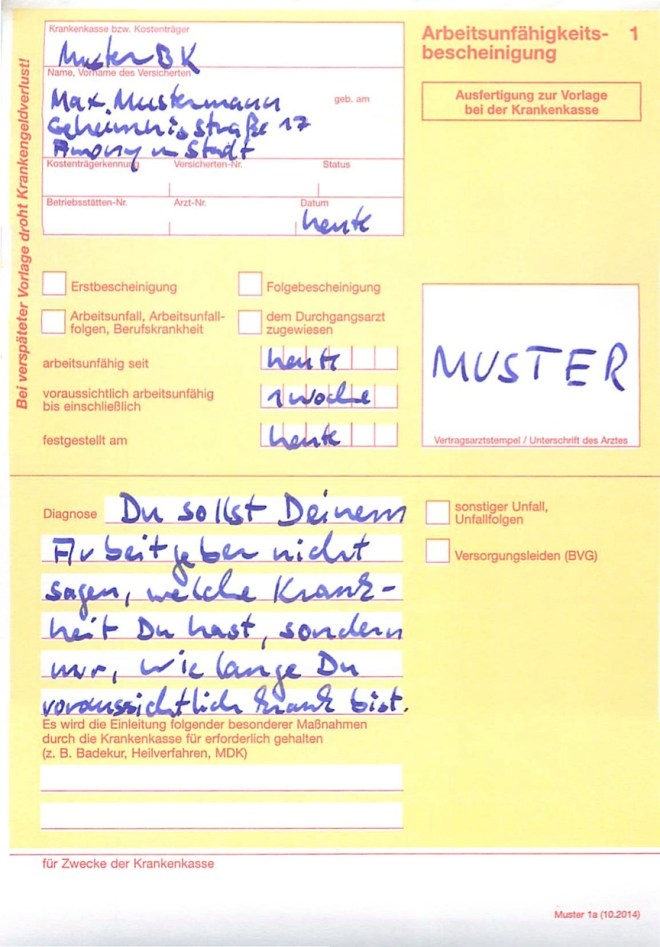 Bei verspäteter Vorlage droht Krankengeldverlust!
Krankenkasse bzw. Kostenträger
Muster BK
Name, Vorname des Versicherten
Max Mustermann
geb. am
Geheimnisstraße 17
Anonym Stadt
Kostenträgerkennung Versicherten-Nr. Status
Betriebsstätten-Nr. Arzt-Nr. Datum
heute
Arbeitsunfähigkeits- 1
bescheinigung
Ausfertigung zur Vorlage
bei der Krankenkasse
Erstbescheinigung
Folgebescheinigung
Arbeitsunfall, Arbeitsunfall-
folgen, Berufskrankheit
dem Durchgangsarzt
zugewiesen
arbeitsunfähig seit heute
voraussichtlich arbeitsunfähig
bis einschließlich 1 Woche
festgestellt am heute
MUSTER
Vertragsarztstempel / Unterschrift des Arztes
Diagnose Du sollst Deinem
Arbeitgeber nicht
sagen, welche Krank-
heit Du hast, sondern
nur, wie lange Du
voraussichtlich krank bist.
sonstiger Unfall,
Unfallfolgen
Versorgungsleiden (BVG)
Es wird die Einleitung folgender besonderer Maßnahmen
durch die Krankenkasse für erforderlich gehalten
(z. B. Badekur, Heilverfahren, MDK)
für Zwecke der Krankenkasse
Muster 1a (10.2014)